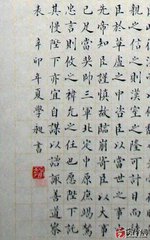 親之信之則漢室之隆可計日而
臣於草廬之中咨臣以當世之事
先帝知臣謹慎故臨崩寄臣以大事
已足當獎帥三軍北定中原庶竭駑
忠言則攸之禕允之任也願陛下託
其慢陛下亦宜自謀以諮諏善道察
表 辛卯年夏學書